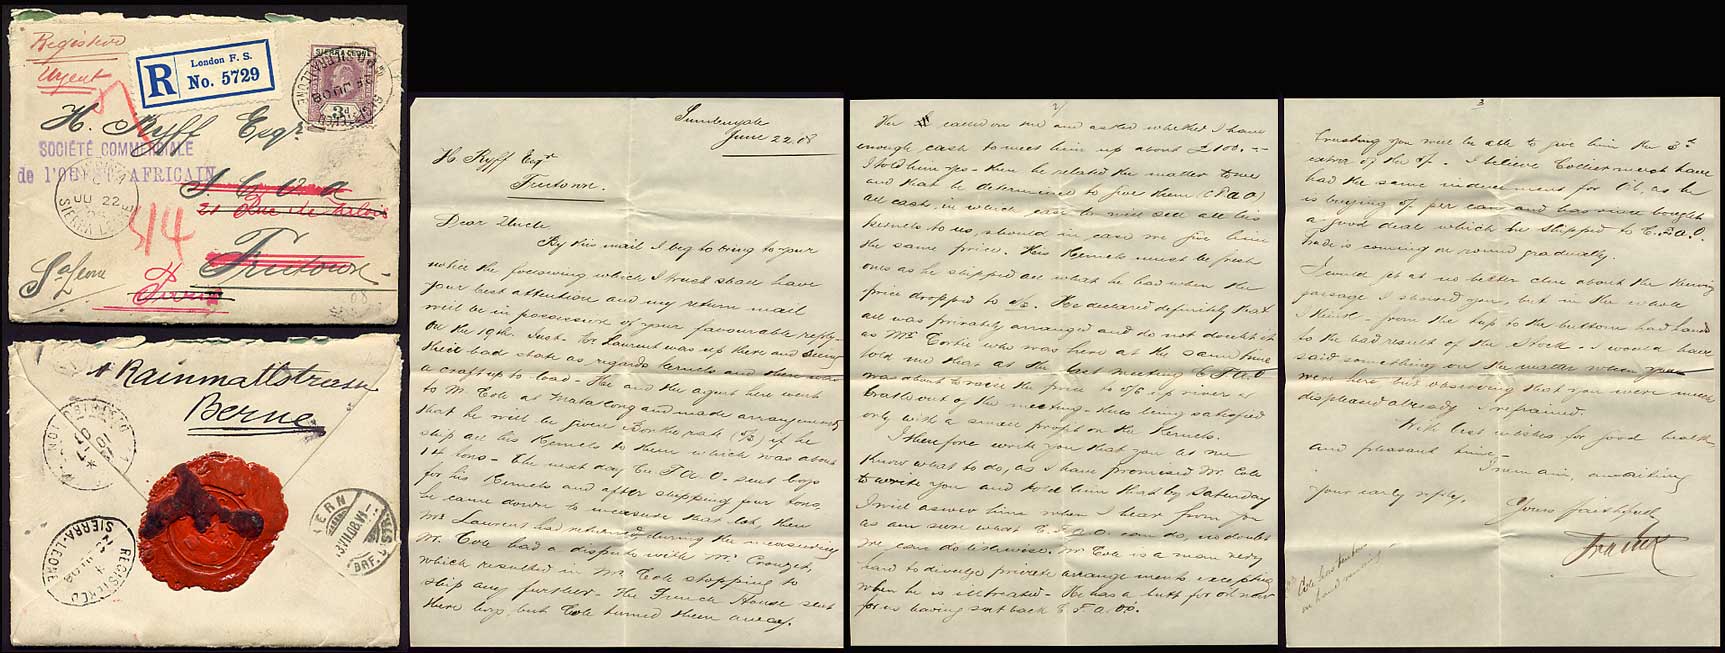 Registered
Urgent
R
London F. S.
No. 5729
SIERRA LEONE
3d
H. Ryff Esqr.
SOCIÉTÉ COMMERCIALE
de l'OUEST AFRICAIN
S. C. O. A
21 Rue de
JU 22
SIERRA LEONE
5/4
Freetown
S/a Leone
Rainmattstrasse
Berne
BERN
REGISTERED
SIERRA-LEONE
June 22, 08
H Ryff Esqr
Freetown.
Dear Uncle
By this mail I beg to bring to your
notice the following which I trust shall have
your best attention and my return mail
will be in possession of your favourable reply.
On the 19th Inst. Mr Laurent was up there and seeing
their bad state as regards kernels and
a craft up to load. He and the agent here went
to Mr Cole at Matacong and made arrangements
that he will be given rate if he
ship all his Kernels to them which was about
14 tons. The next day C. F. A. O. sent boys
for his Kernels and after shipping four tons,
he came down to measure that lot, then
Mr Laurent had returned, during the measuring
Mr. Cole had a dispute with Mr.
which resulted in Mr Cole stopping to
ship any further. The French House sent
there boys but Cole turned them away.
2/
He called on me and asked whether I have
enough cash to meet him up about £100.
I told him yes. then he related the matter to me
and that he determined to give them
all cash, in which case he will sell all his
kernels to us, should in case we give him
the same price. His Kernels must be fresh
ones as he shipped all what he had when the
price dropped to . He declared definitely that
all was privately arranged and do not doubt it
as Mr who was here at the same time
told me that at the last meeting C F A O
was about to raise the price to up river &
out of the meeting. thus being satisfied
only with a small profit on the Kernels.
I therefore write you that you let me
know what to do, as I have promised Mr Cole
to write you and told him that by Saturday
I will answer him when I hear from you
as am sure what C. F. A. O. can do, no doubt
we can do likewise. Mr Cole is a man very
hard to divulge private arrangements excepting
when he is illtreated. He has a butt for oil now
for us having sent back C. F. A. O's.
3
Trusting you will be able to give him the 3rd
extra of the . I believe have
had the same inducement for Oil, as he
is buying per can and has since bought
a good deal which he shipped to C. F. A. O.
Trade is coming on round gradually.
I could get at no better clue about the
passage I showed you but in the whole
I think - from the top to the bottom had hand
to the bad result of the Stock. I would have
said something on the matter when you
were here but observing that you were much
displeased already I refrained.
With best wishes for good health
and pleasant time.
I remain, awaiting
your early reply,
Yours faithfully
Cole has
on hand